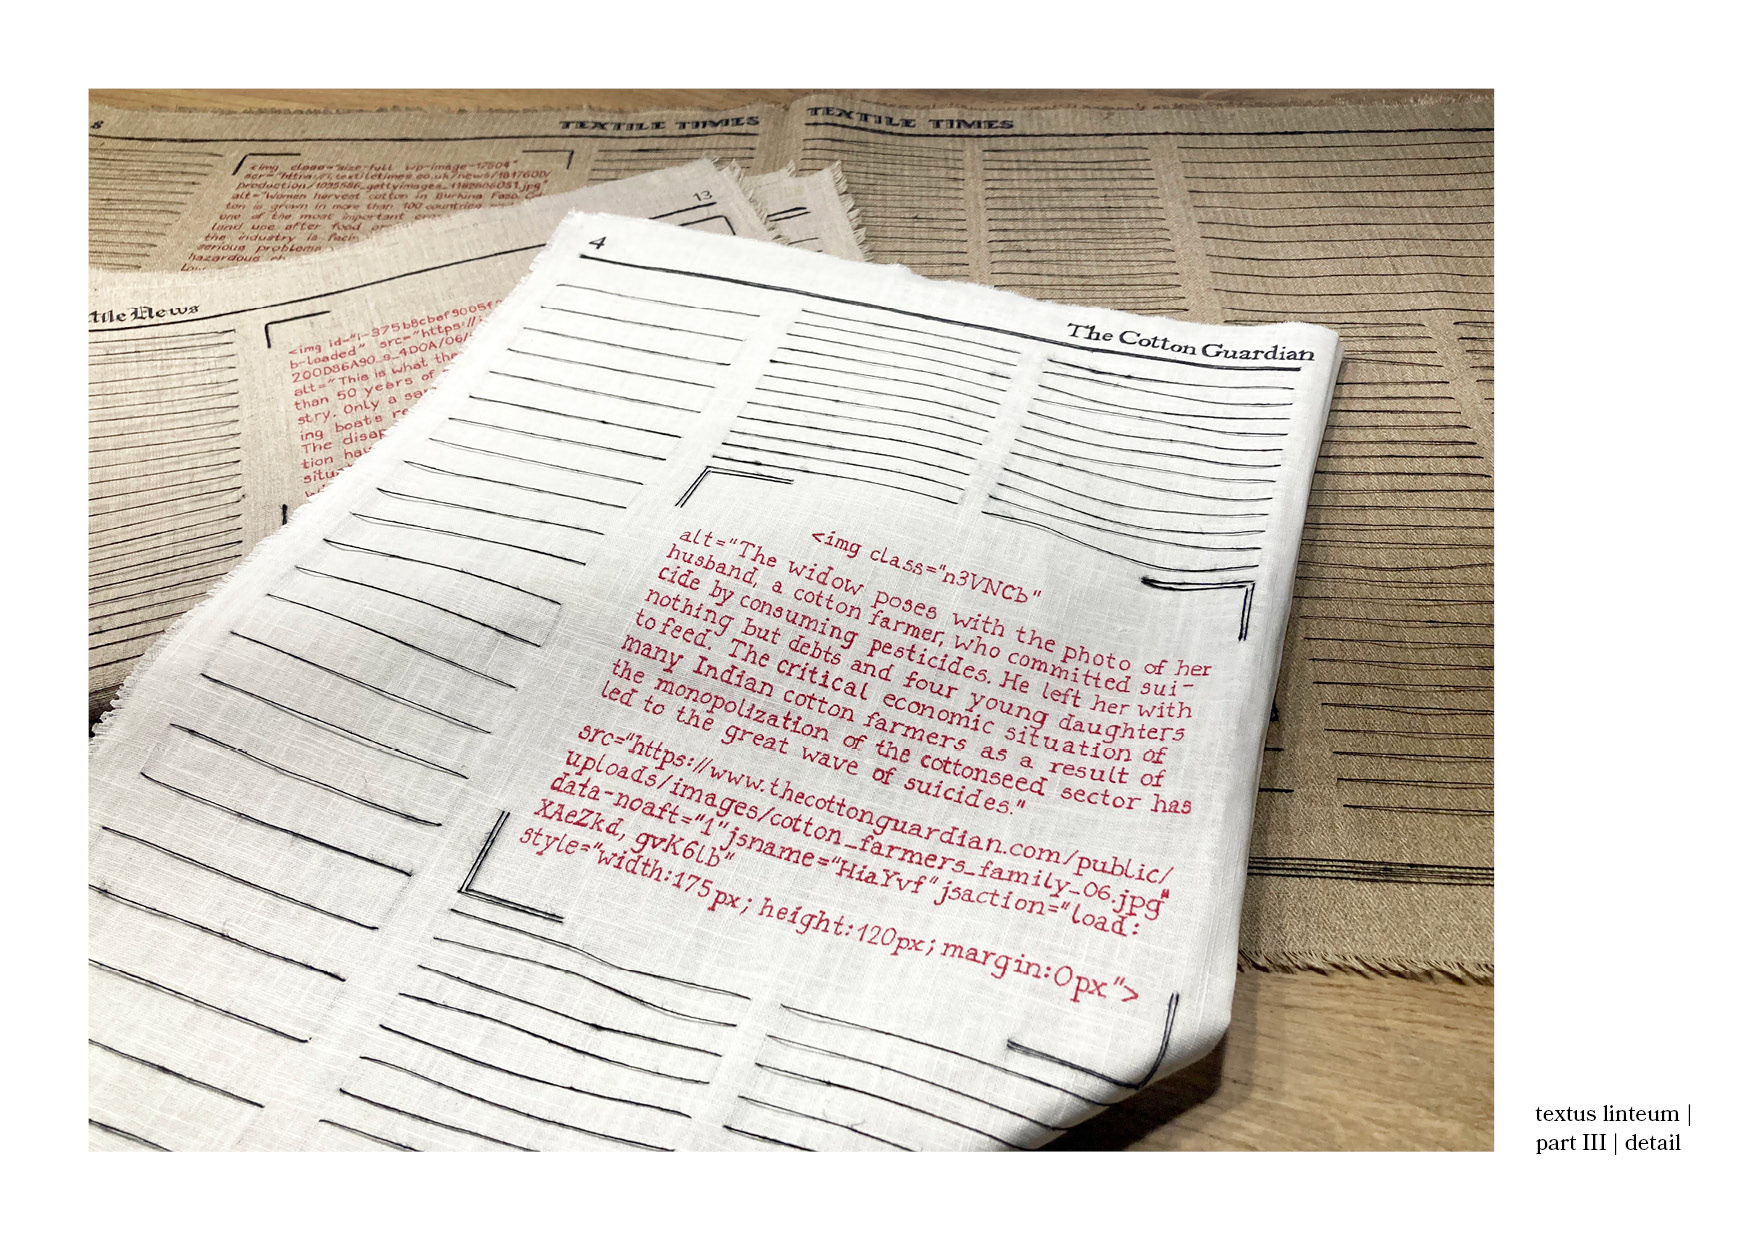 8
TEXTILE TIMES
TEXTILE TIMES
<img class="size-full wp-image-12504"
production/1035586_gettyimages_
alt="Women harvest cotton in Burkina Faso.
ton is grown in more than 100 countries
one of the most important
land use after food
the industry is
serious problems
hazardous
13
tile News
<img id="i-375b8cbef9005f
b-loaded" src="https://i
200D86A90_s_4D0A/06/
alt="This is what the
than 50 years of
stry. Only a
ing boats
The
tion
4
The Cotton Guardian
<img class="n3VNCb"
alt="The widow poses with the photo of her
husband, a cotton farmer, who committed sui-
cide by consuming pesticides. He left her with
nothing but debts and four young daughters
to feed. The critical economic situation of
many Indian cotton farmers as a result of
the monopolization of the cottonseed sector has
led to the great wave of suicides."
src="https://www.thecottonguardian.com/public/
uploads/images/cotton_farmers_family_06.jpg"
data-noaft="1"jsname="HiaYvf"jsaction="load:
XAeZkd, gvK6lb"
style="width:175px; height:120px; margin:0px">
textus linteum |
part III | detail